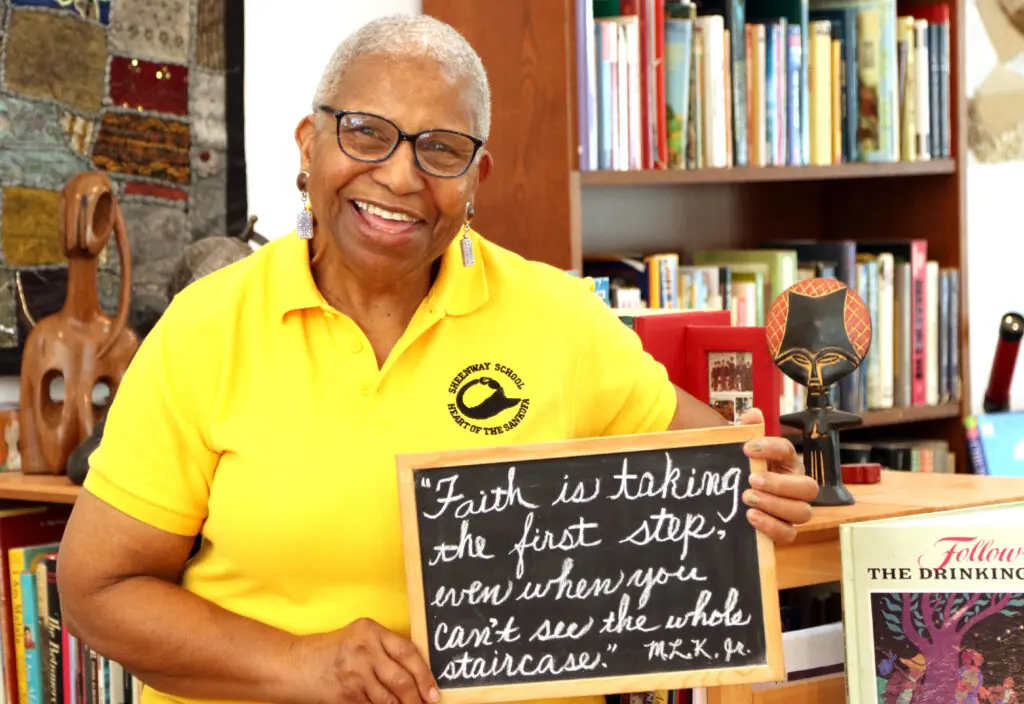 SHEENWAY SCHOOL
HEART OF THE SANKOFA
"Faith is taking
the first step,
even when you
can't see the whole
staircase."
M.L.K. Jr.
Follow
THE DRINKING